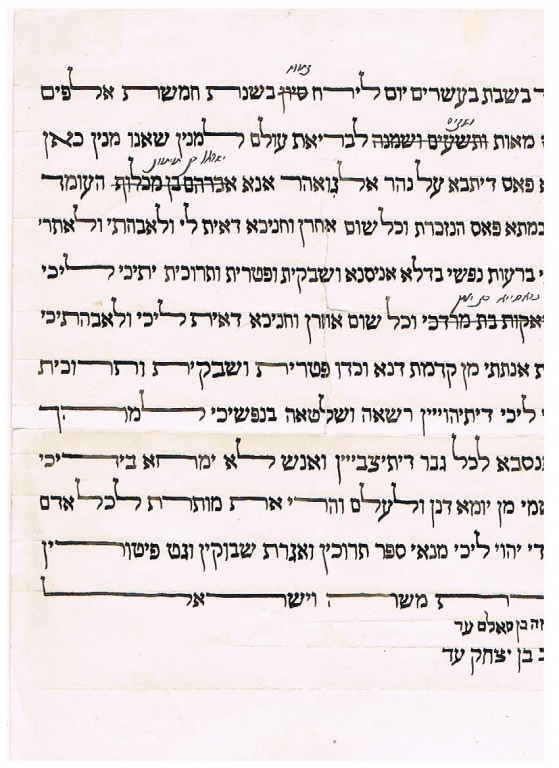 תמוז
בשבת בעשרים יום לירח סיון בשנת חמשת אלפים
מאות ותשעים ושמנה לבריאת עולם למנין שאנו מנין כאן
פאס דיתבא על נהר אלגואהר אנא אברהם בן מכלוף העומד
במתא פאס הנזכרת וכל שום אחרן וחניכא דאית לי ולאבהתי ולאתרי
ברעות נפשי בדלא אניסנא ושבקית ופטרית ותרוכית יתיכי ליכי
יאקות בת מרדכי וכל שום אוחרן וחניכא דאית ליכי ולאבהתיכי
אנתתי מן קדמת דנא וכדן פטרית ושבקית ותרוכית
ליכי דיתיהוייין רשאה ושלטאה בנפשיכי למהך
תנסבא לכל גבר דיתיצבייין ואנש לא ימחא בידיכי
שמי מן יומא דנן ולעלם והרי את מותרת לכל אדם
די יהוי ליכי מנאי ספר תרוכין ואגרת שבוקין וגט פיטורין
ת משה וישראל
ה בן סאלם עד
ב בן יצחק עד